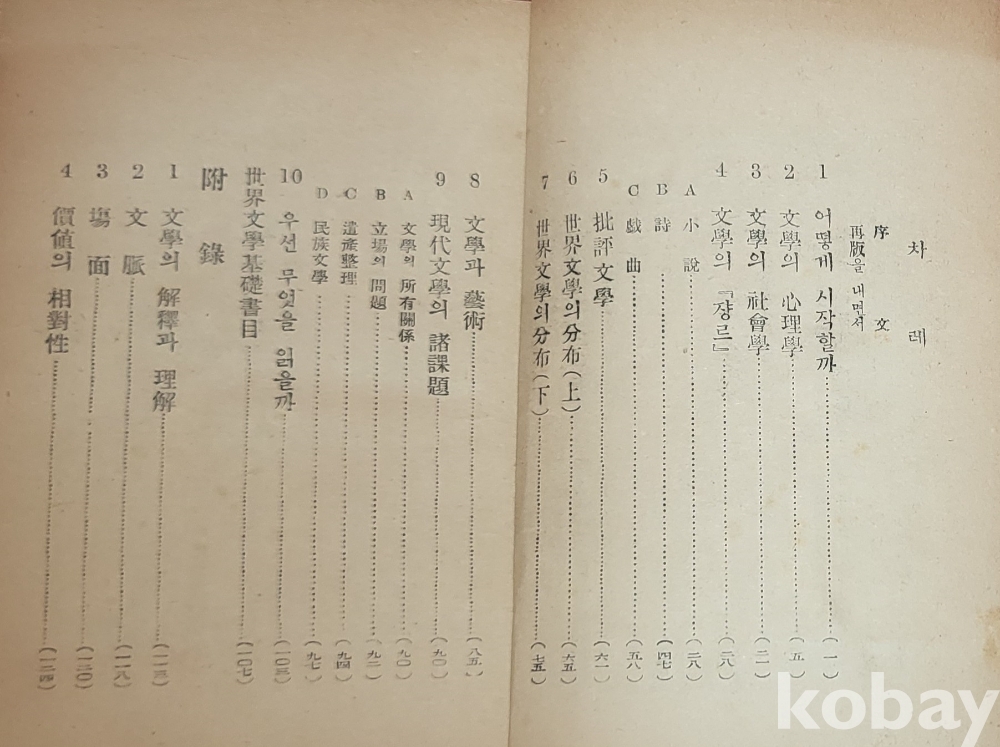 차 례
序 文
再版을 내면서
1 어떻게 시작할까 (一)
2 文學의 心理學 (五)
3 文學의 社會學 (二一)
4 文學의 「쟝르」 (二八)
A 小說 (二八)
B 詩 (四七)
C 戱曲 (五八)
5 批評文學 (六一)
6 世界文學의 分布(上) (六五)
7 世界文學의 分布(下) (七五)
8 文學과 藝術 (八五)
9 現代文學의 諸課題 (九〇)
A 文學의 所有關係 (九〇)
B 立場의 問題 (九二)
C 遺產整理 (九四)
D 民族文學 (九七)
10 우선 무엇을 읽을까 (一〇三)
世界文學基礎書目 (一〇七)
附 錄
1 文學의 解釋과 理解 (一一三)
2 文 脈 (一一八)
3 塲 面 (一二〇)
4 價値의 相對性 (一二四)
kobay